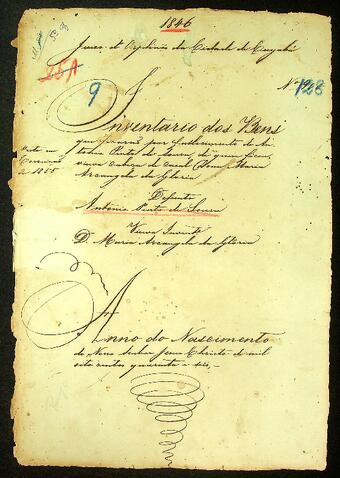 1846
Juizo de Orphãos da Cidade de Cuyabá
25A
9
Nº 128
Inventario dos Bens
que ficarão por fallecimento de An-
tonio Pinto de Souza, de quem ficou
viuva cabeça de casal Dona Maria
Arcangela da Gloria
de 1855
Defunto
Antonio Pinto de Souza
Viuva Invente
D. Maria Arcangela da Gloria
Anno do Nascimento
de Nosso Senhor Jesus Christo de mil
oito centos quarenta e seis,